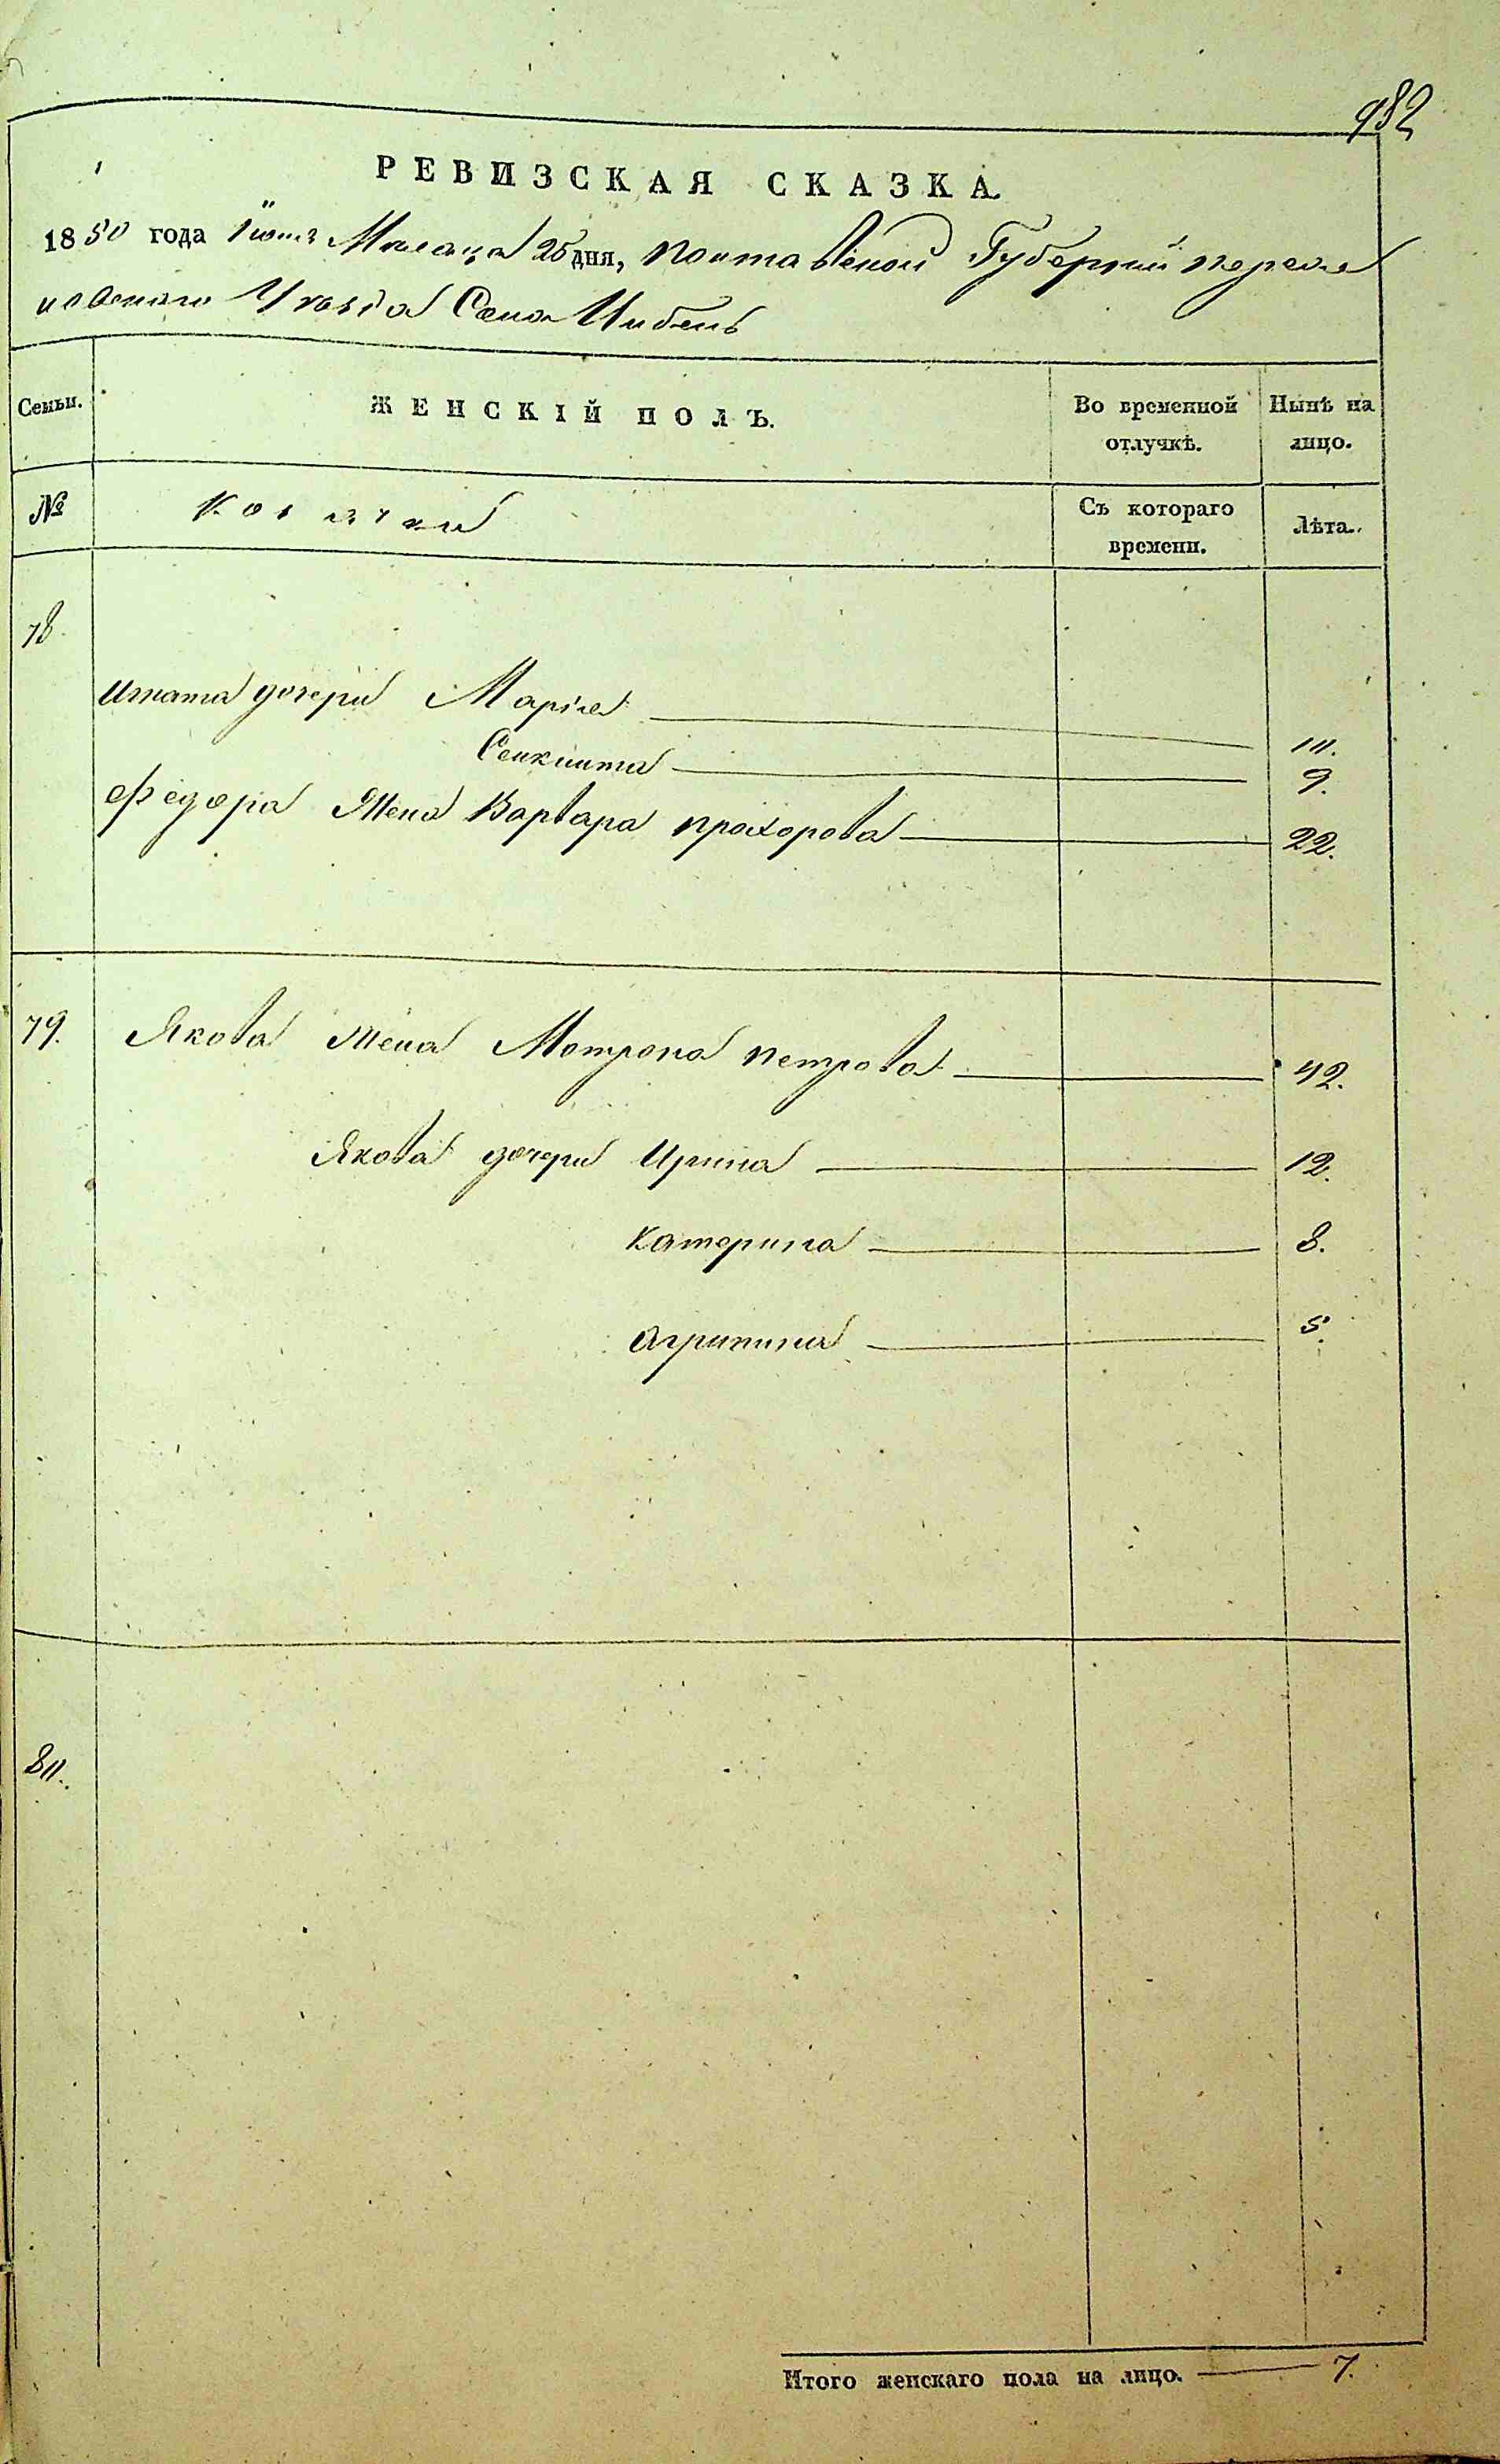 982
РЕВИЗСКАЯ СКАЗКА.
1850 года Іюня Месяца 25 дня, Полтавской Губерніи перея
славского Уезда Села Цибель
Семьи.
ЖЕНСКІЙ ПОЛЪ.
Во временной отлучкѣ.
Нынѣ на лицо.
№
Козачки
Съ котораго времени.
Лѣта.
78.
Игната дочери Марія 10.
9.
Федора жена Варвара прохорова 22.
79. Якова жена Мотрона петрова 42.
Якова дочери Ирина 12.
Катерина 8.
Агрипина 5.
80.
Итого женскаго пола на лицо. 7.